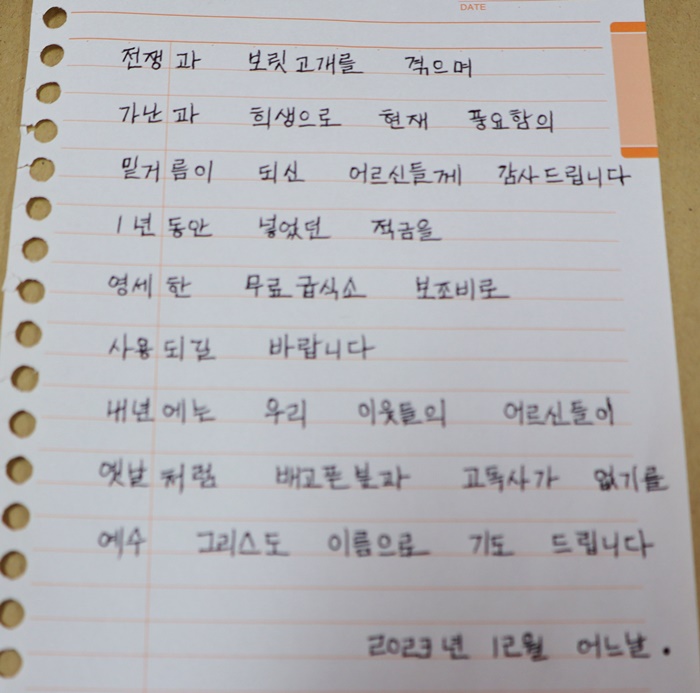 DATE
전쟁과 보릿고개를 격으며
가난과 희생으로 현재 풍요함의
밑거름이 되신 어르신들께 감사드립니다
1년동안 넣었던 적금을
영세한 무료급식소 보조비로
사용되길 바랍니다
내년에는 우리 이웃들의 어르신들이
옛날처럼 배고픈분과 고독사가 없기를
예수 그리스도 이름으로 기도 드립니다
2023년 12월 어느날.